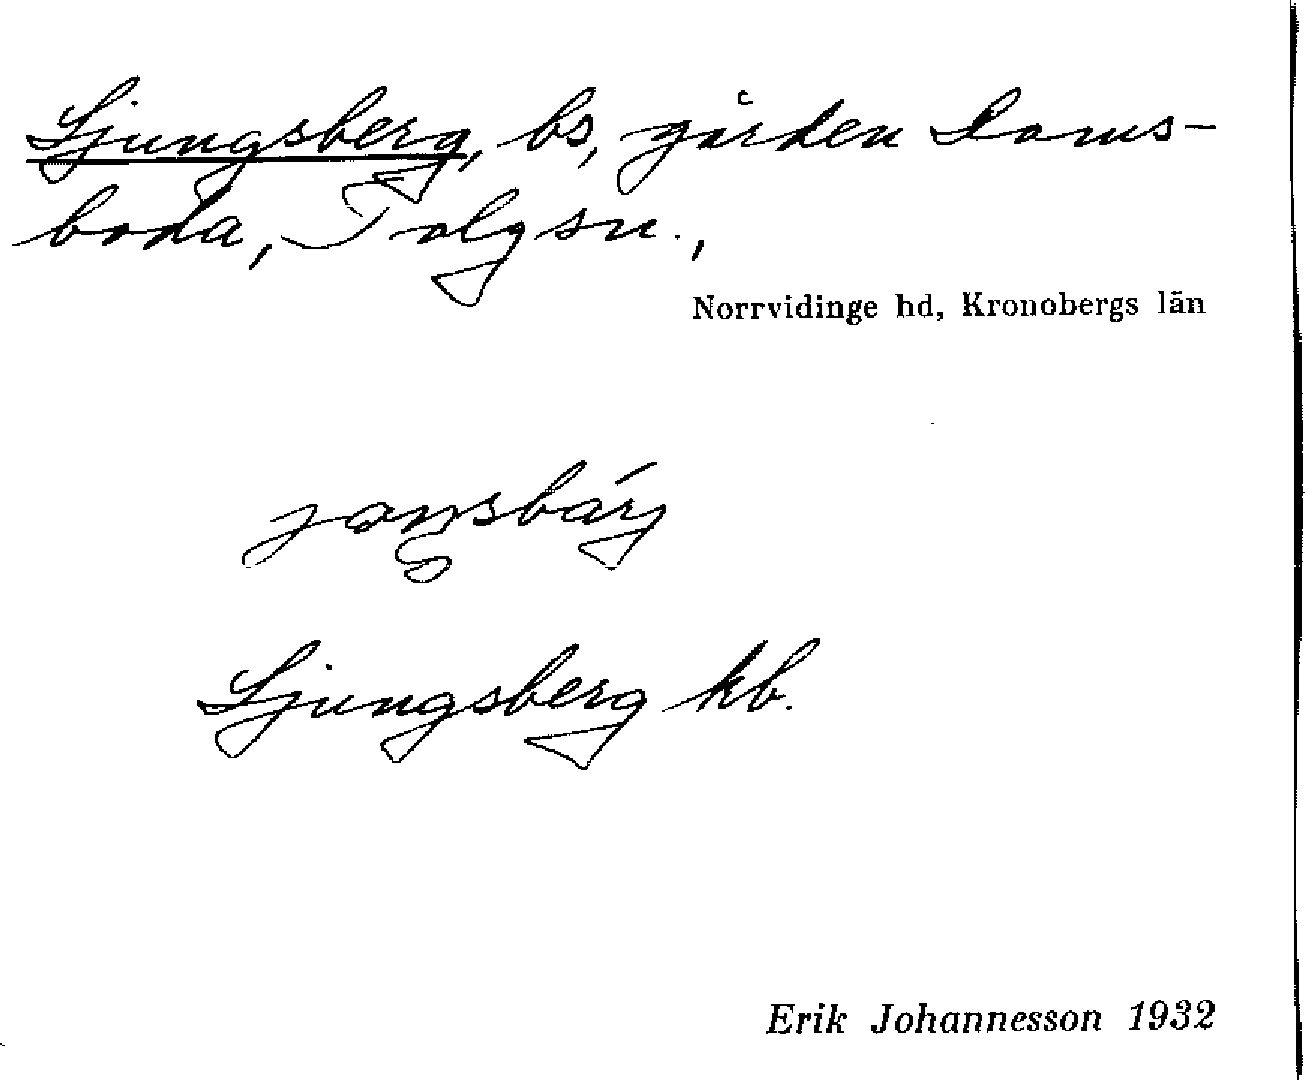 Ljungsberg, bs, gården Loms-
boda, Tolg sn.,
Norrvidinge hd, Kronobergs län
Ljungsberg kb.
Erik Johannesson 1932